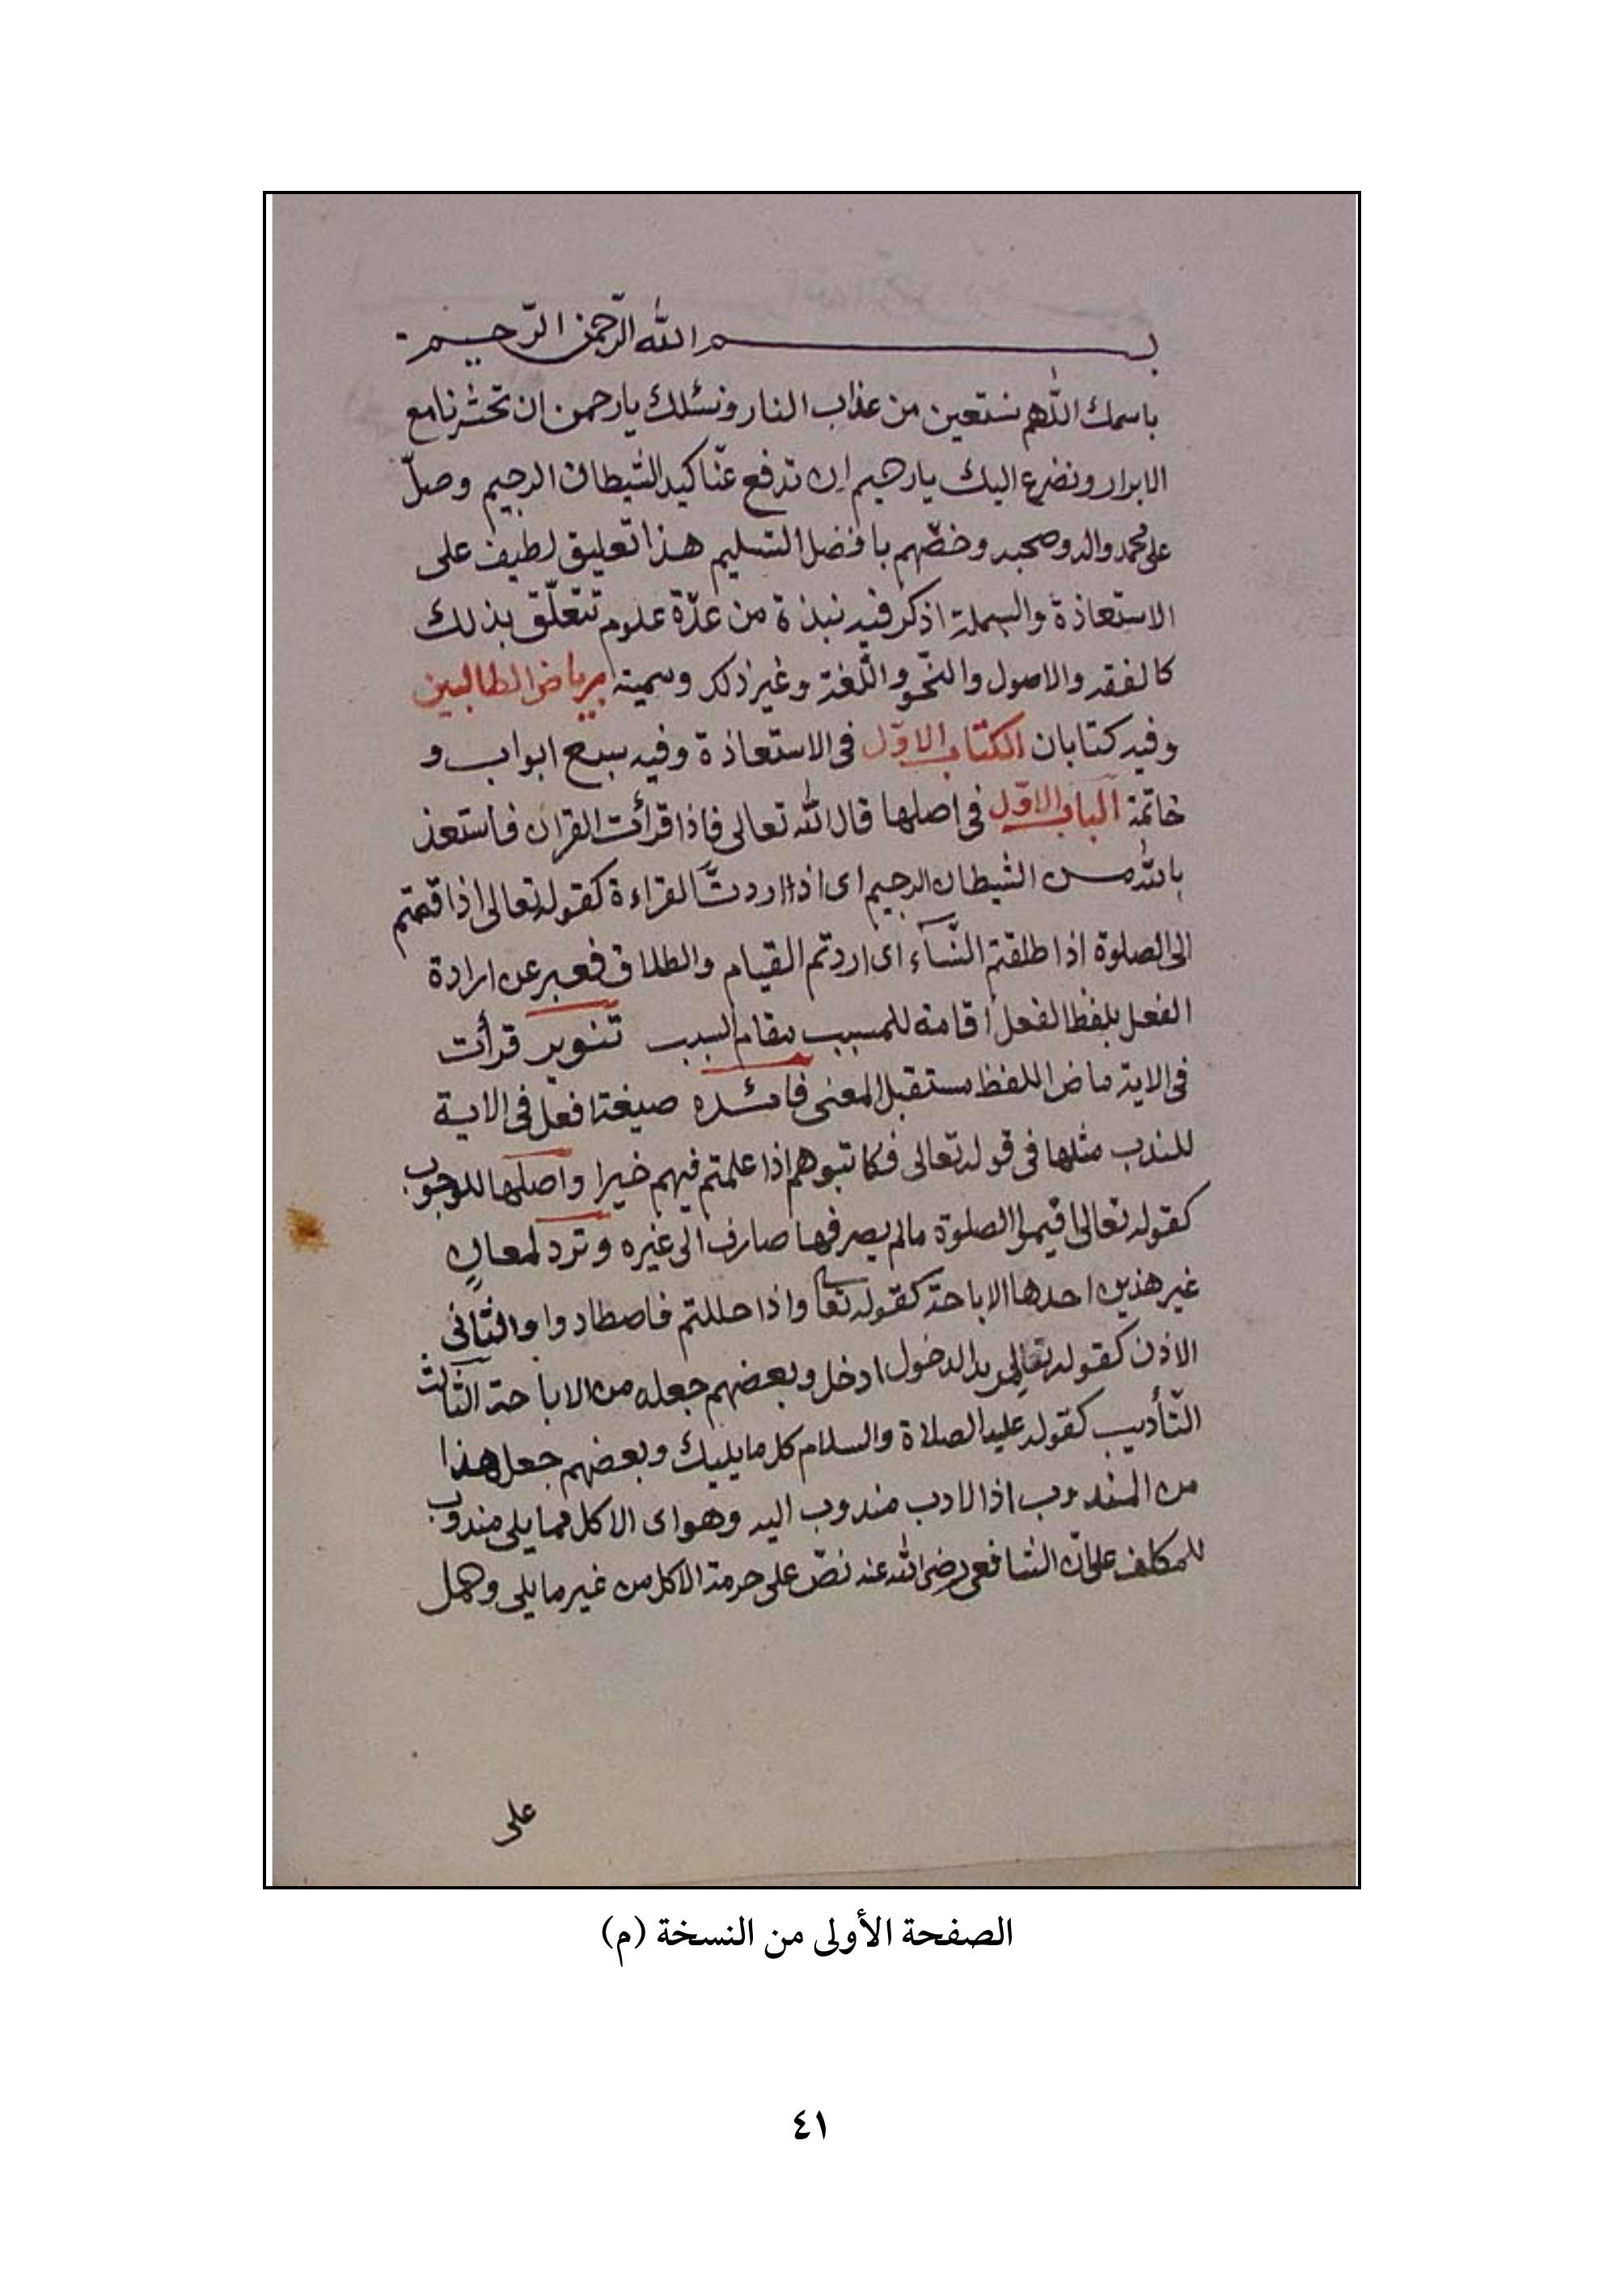 بسم الله الرحمن الرحيم
باسمك اللهم نستعين من عذاب النار ونسئلك يا رحمن ان تحشرنا مع
الابرار ونضرع اليك يا رحيم ان تدفع عنّا كيد الشيطان الرجيم وصلّ
على محمد واله وصحبه وخصّهم بافضل التسليم هذا تعليق لطيف على
الاستعاذة والبسملة اذكر فيه نبذة من عدّة علوم تتعلّق بذلك
كالفقه والاصول والنّحو واللّغة وغير ذلك وسميته برياض الطالبين
وفيه كتابان الكتاب الاوّل فى الاستعاذة وفيه سبع ابواب و
خاتمة الباب الاوّل فى اصلها قال الله تعالى فاذا قرأت القران فاستعذ
بالله من الشيطان الرجيم اى اذا اردت القراءة كقوله تعالى اذا قمتم
الى الصلوة اذا طلقتم النّسآء اى اردتم القيام والطلاق فعبر عن ارادة
الفعل بلفظ الفعل اقامة للمسبب مقام السبب تنوير قرأت
فى الاية ماض اللفظ مستقبل المعنى فائده صيغة افعل فى الاية
للندب مثلها فى قوله تعالى فكاتبوهم اذا علمتم فيهم خيرا واصلها للوجوب
كقوله تعالى اقيموا الصلوة مالم يصرفها صارف الى غيره وترد لمعان
غير هذين احدها الاباحة كقوله تعالى واذا حللتم فاصطادوا والثّانى
الاذن كقوله تعالى بدالدخول ادخل وبعضهم جعله من الاباحة الثّالث
التّأديب كقوله عليه الصلاة والسلام كل مما يليك وبعضهم جعل هذا
من المندوب اذ الادب مندوب اليه وهو اى الاكل مما يلى مندوب
للمكلف على انّ الشافعى رضى الله عنه نصّ على حرمة الاكل من غير ما يلى وحمل
على
الصفحة الأولى من النسخة (م)
٤١